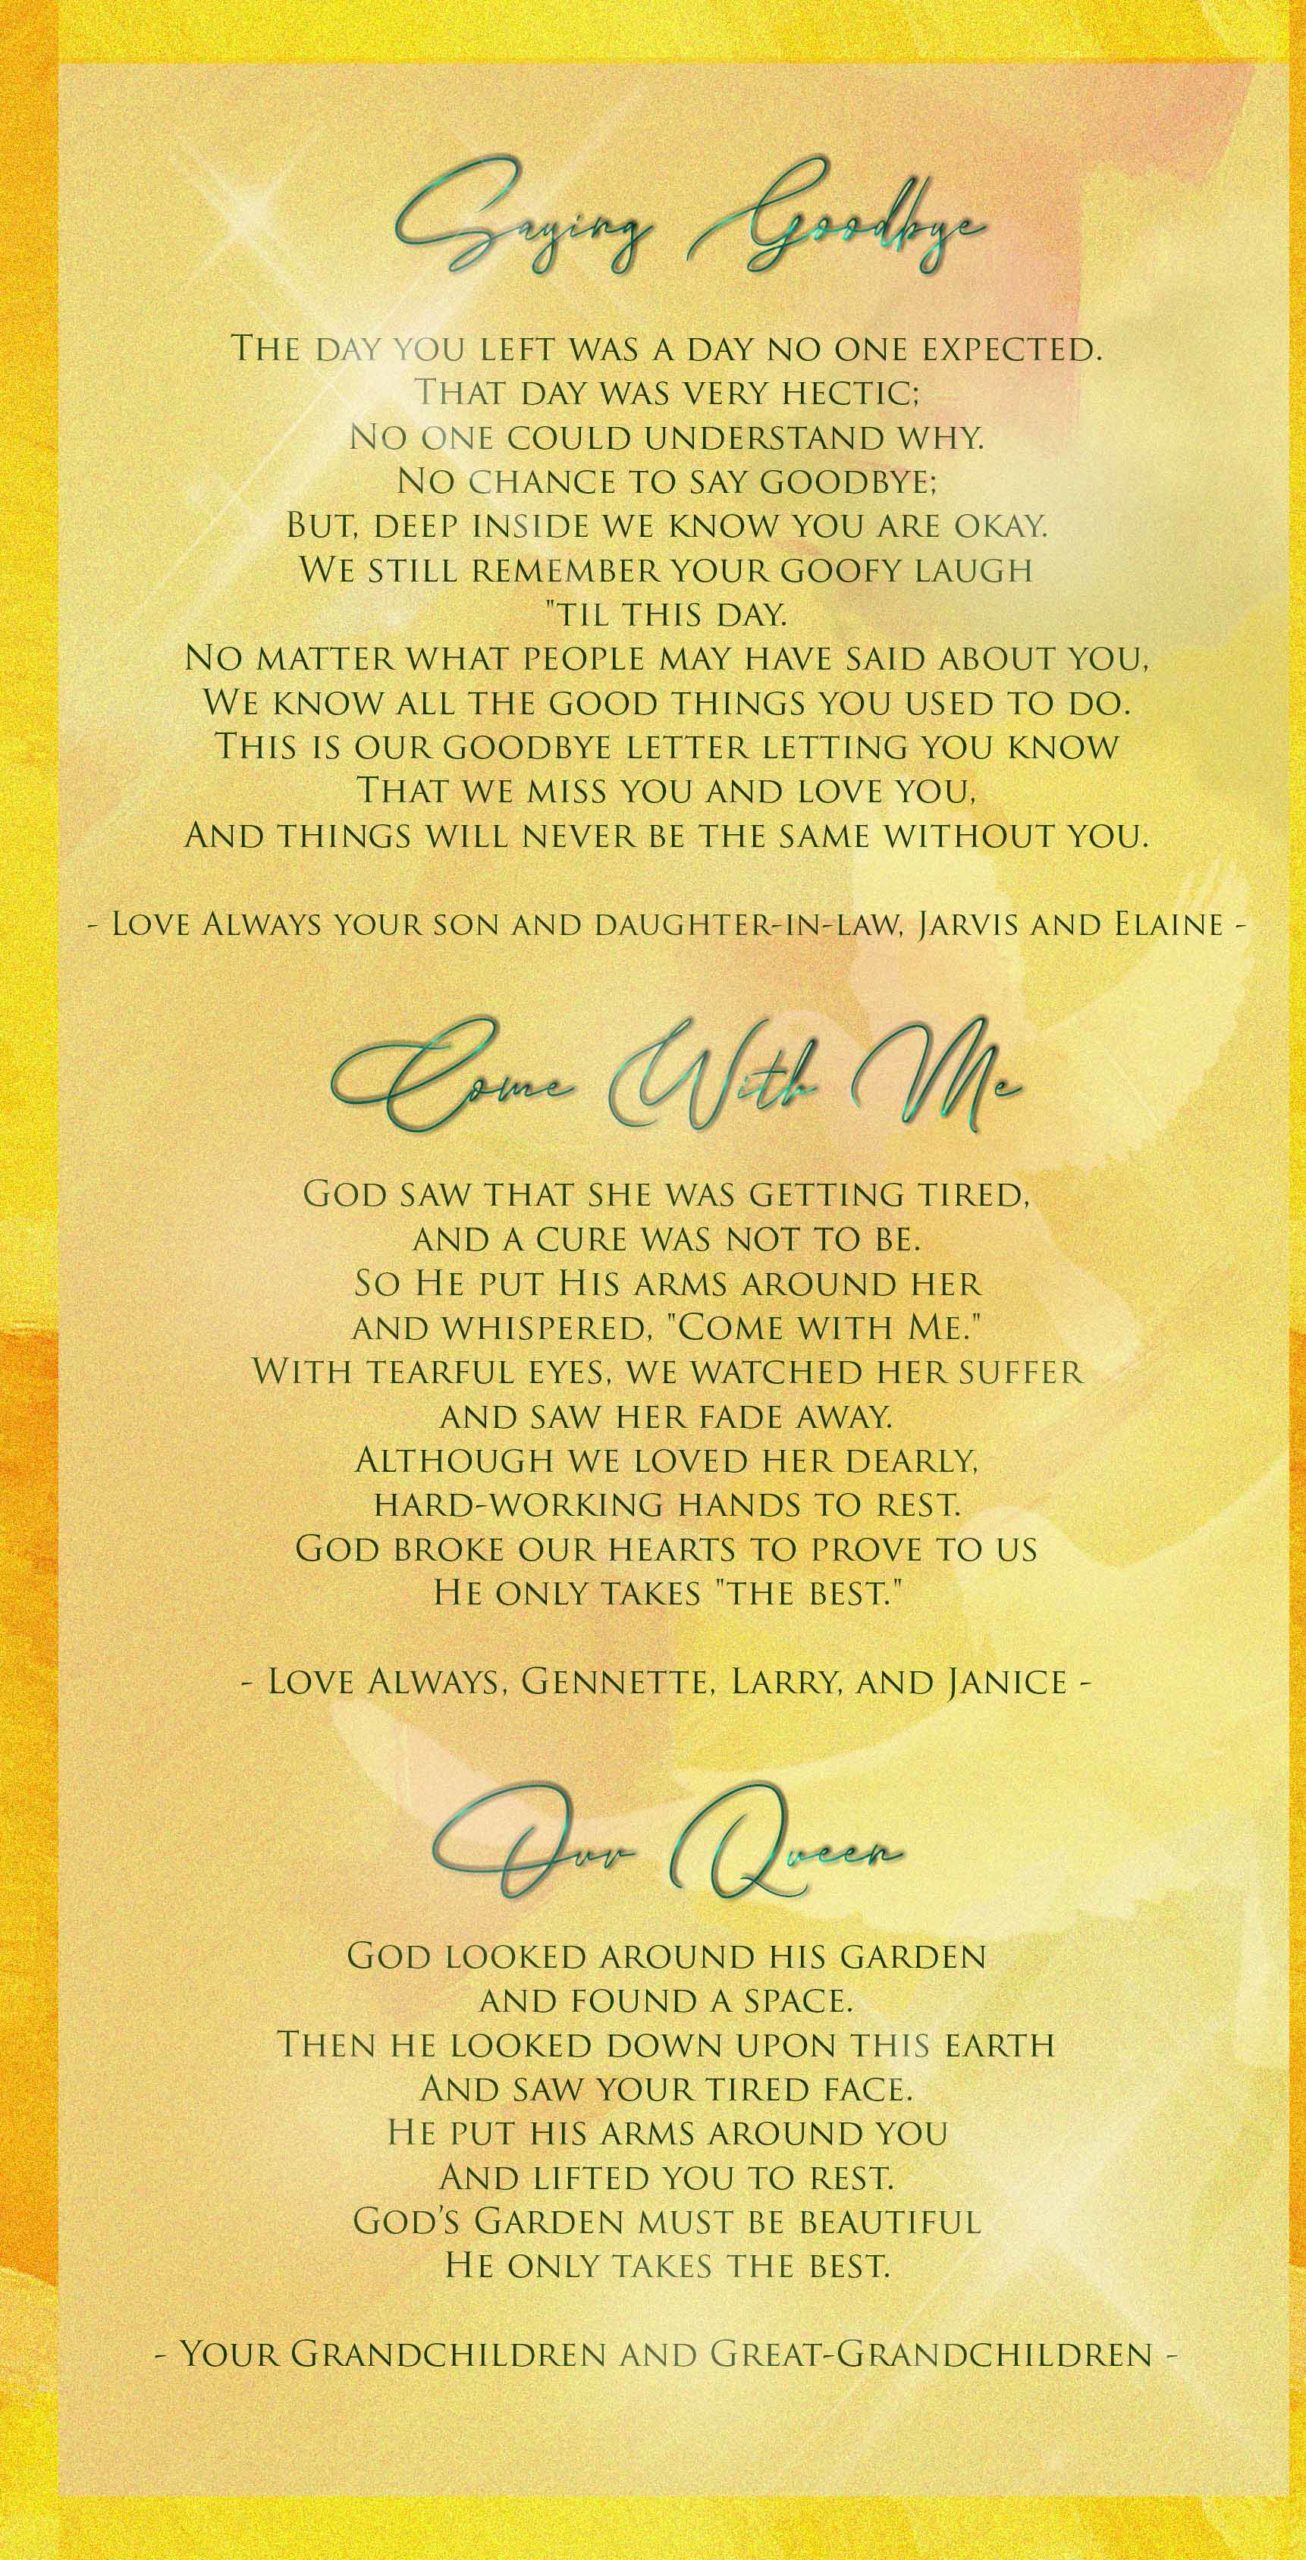 Saying Goodbye
The day you left was a day no one expected.
That day was very hectic;
No one could understand why.
No chance to say goodbye;
But, deep inside we know you are okay.
We still remember your goofy laugh
"til this day.
No matter what people may have said about you,
We know all the good things you used to do.
This is our goodbye letter letting you know
That we miss you and love you,
And things will never be the same without you.
- Love Always your son and daughter-in-law, Jarvis and Elaine -
Come With Me
God saw that she was getting tired,
and a cure was not to be.
So He put His arms around her
and whispered, "Come with Me."
With tearful eyes, we watched her suffer
and saw her fade away.
Although we loved her dearly,
hard-working hands to rest.
God broke our hearts to prove to us
He only takes "the best."
- Love Always, Gennette, Larry, and Janice -
Our Queen
God looked around his garden
and found a space.
Then he looked down upon this earth
And saw your tired face.
He put his arms around you
And lifted you to rest.
God's Garden must be beautiful
He only takes the best.
- Your Grandchildren and Great-Grandchildren -